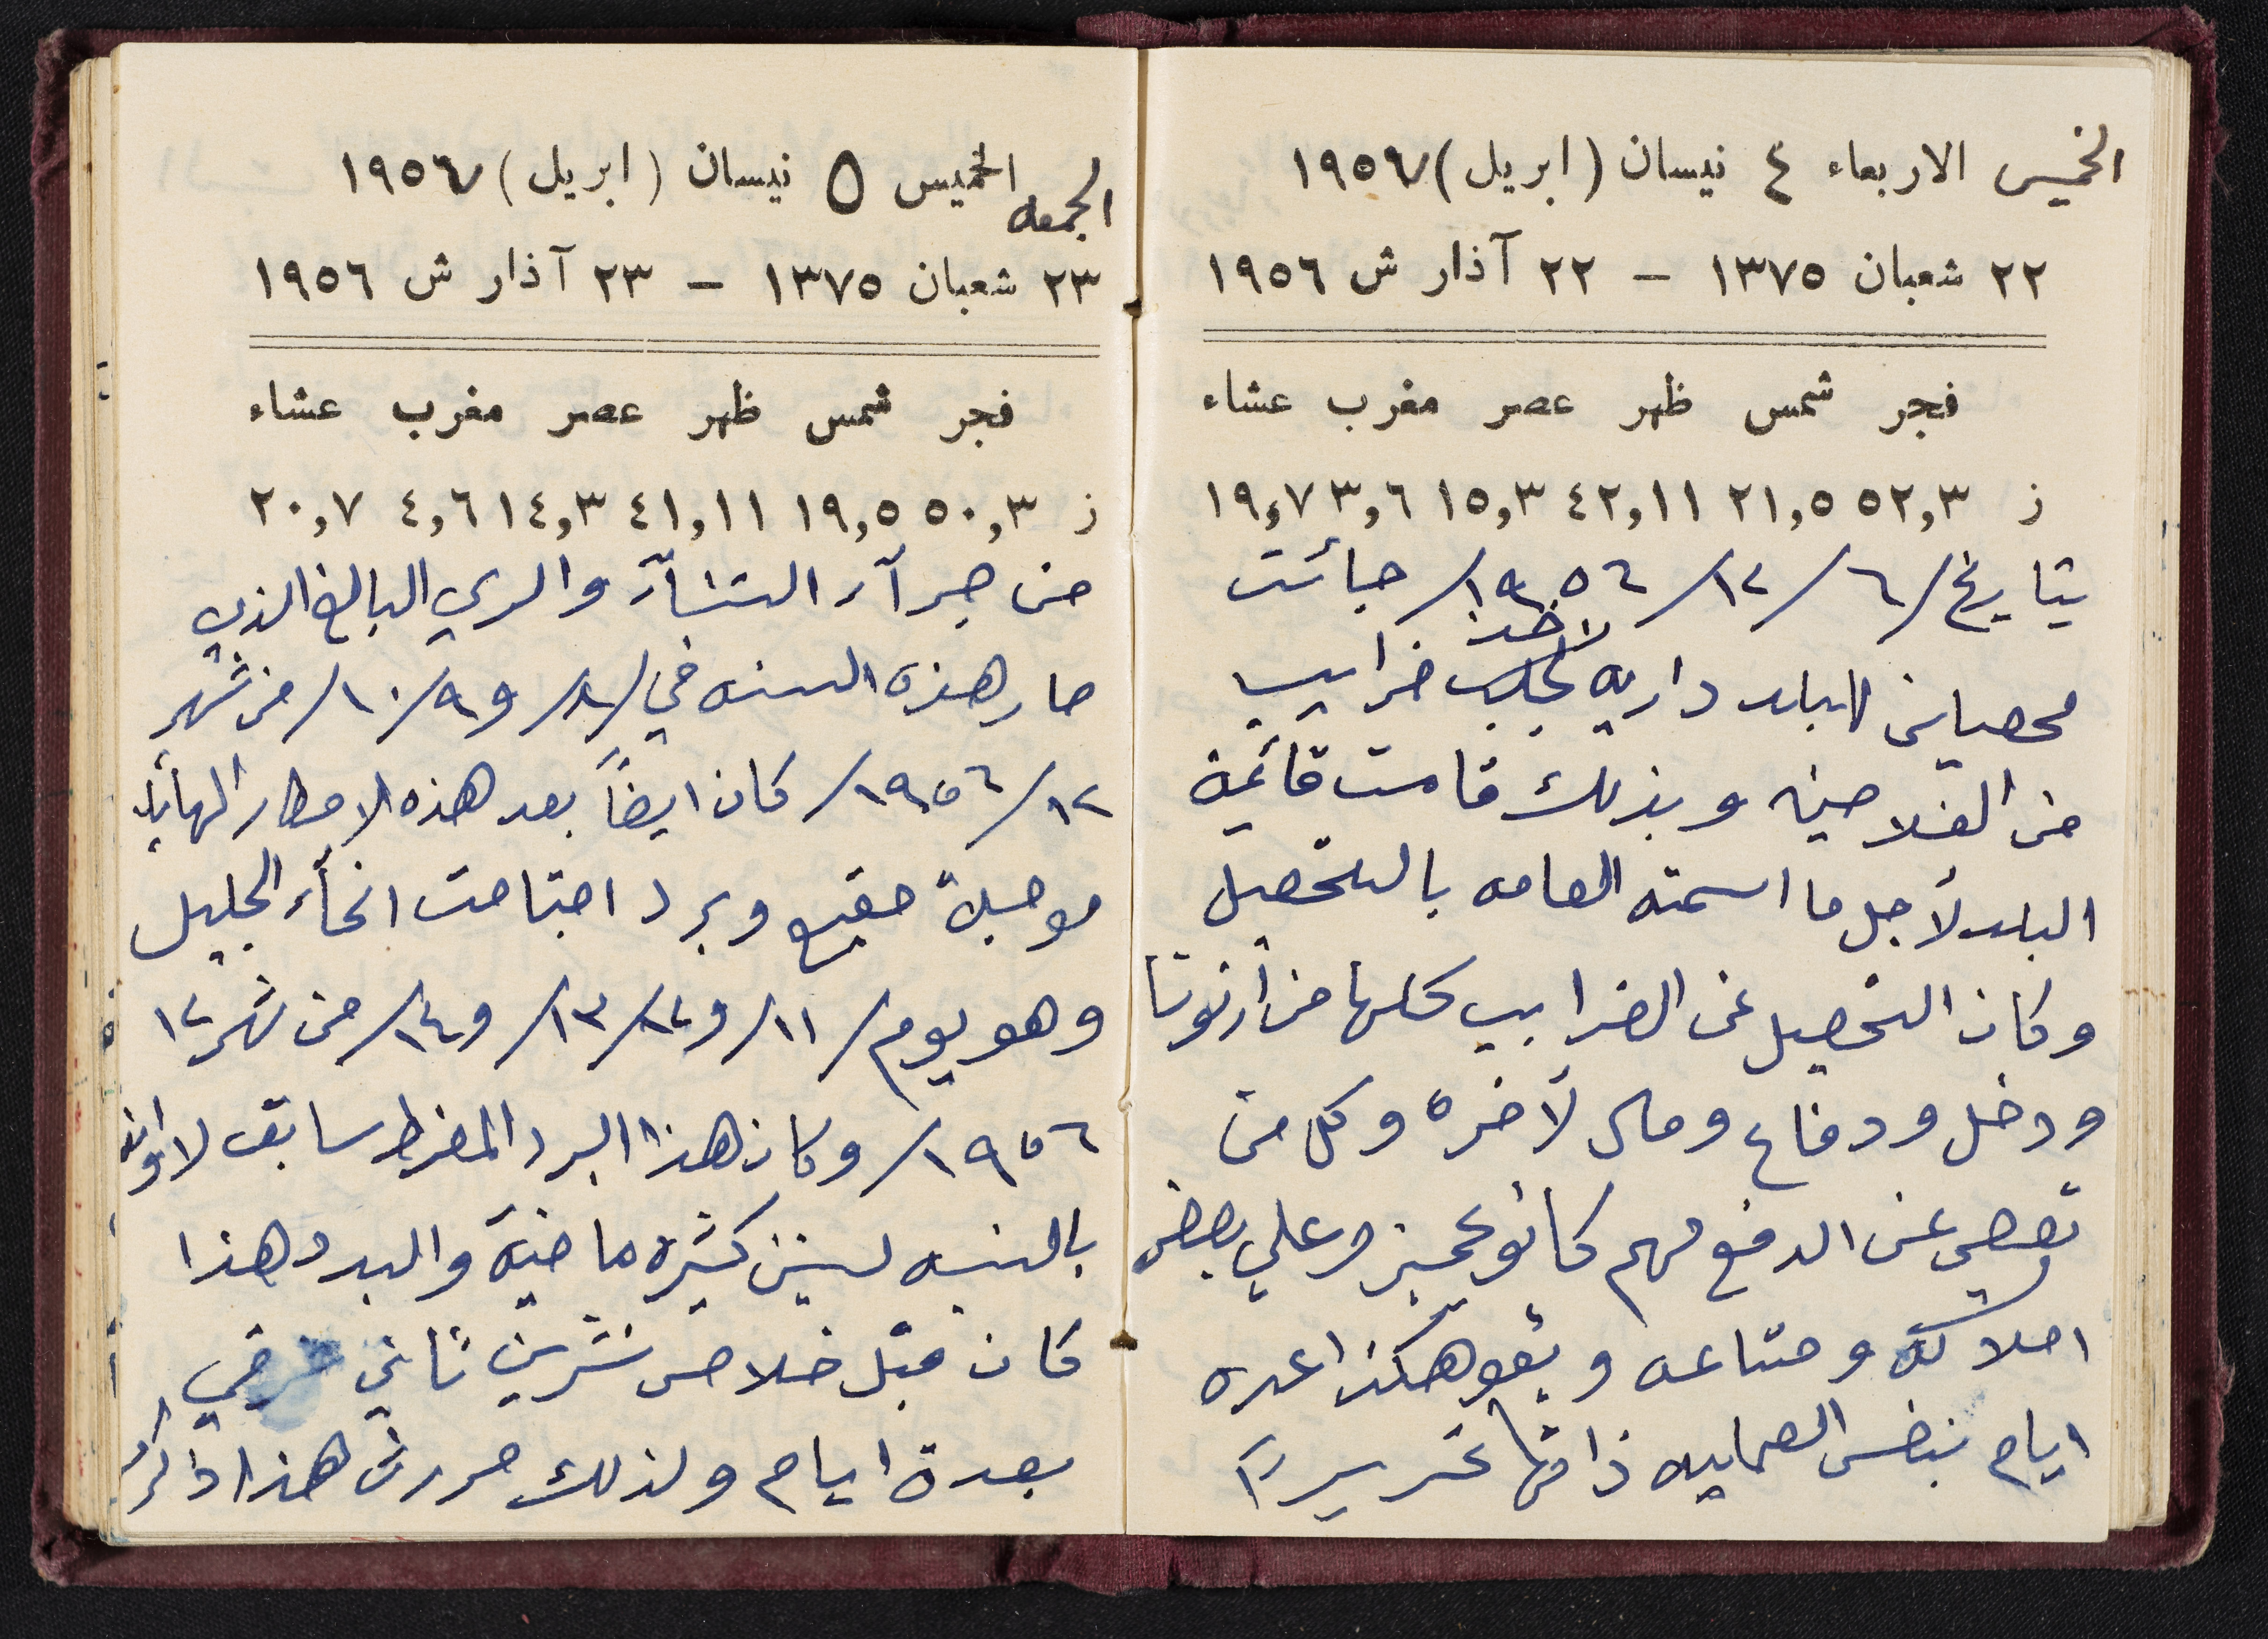 الخميس الاربعاء ٤ نيسان (ابريل) ١٩٥٦
٢٢ شعبان ١٣٧٥ – ٢٢ آذار ش ١٩٥٦
فجر شمس ظهر عصر مغرب عشاء
ز ٥٢,٣ ٢١,٥ ٤٢,١١ ١٥,٣ ٣,٦ ١٩,٧
بتاريخ /٦/١٢/١٩٥٦/ جائت
لاخذ
محصيلين للبلد داريه لجلب ضرايب
من الفلاحين وبذلك قامت قائمة
البلد لأجل ما اسمته العامه بالتحصيل
وكان التحصيل عن الضرايب كلها من أرنونا
ودخل ودفاع ومال لآخره وكل من
تعصى عن الدفع منهم كانو يحجزو على بعض
املاكه ومتاعه وبقو هكذا عده
ايام بنفس العمليه ذاتها تقريباً
الجمعه الخميس ٥ نيسان (ابريل) ١٩٥٦
٢٣ شعبان ١٣٧٥ – ٢٣ آذار ش ١٩٥٦
فجر شمس ظهر عصر مغرب عشاء
ز ٥٠,٣ ١٩,٥ ٤١,١١ ١٤,٣ ٤,٦ ٢٠,٧
من جرآء الشتآء والري البالغ الذي
صار هذه السنه في /٨/ و٩/ ١٠/ من شهر
١٢/١٩٥٦/ كان ايضاً بعد هذه الامطار الهائله
موجة صقيع وبرد اجتاحت انحآء الجليل
وهو يوم /١١/ و١٢/ ١٣/ و١٤/ من شهر ١٢
١٩٥٦/ وكان هذا البرد المفرط سابق لاوانه
بالنسبه لسنين كثيره ماضية والبرد هذا
كان قبل خلاص تشرين ثاني شرقي
بعدة ايام ولذلك حررت هذا ذاكراً